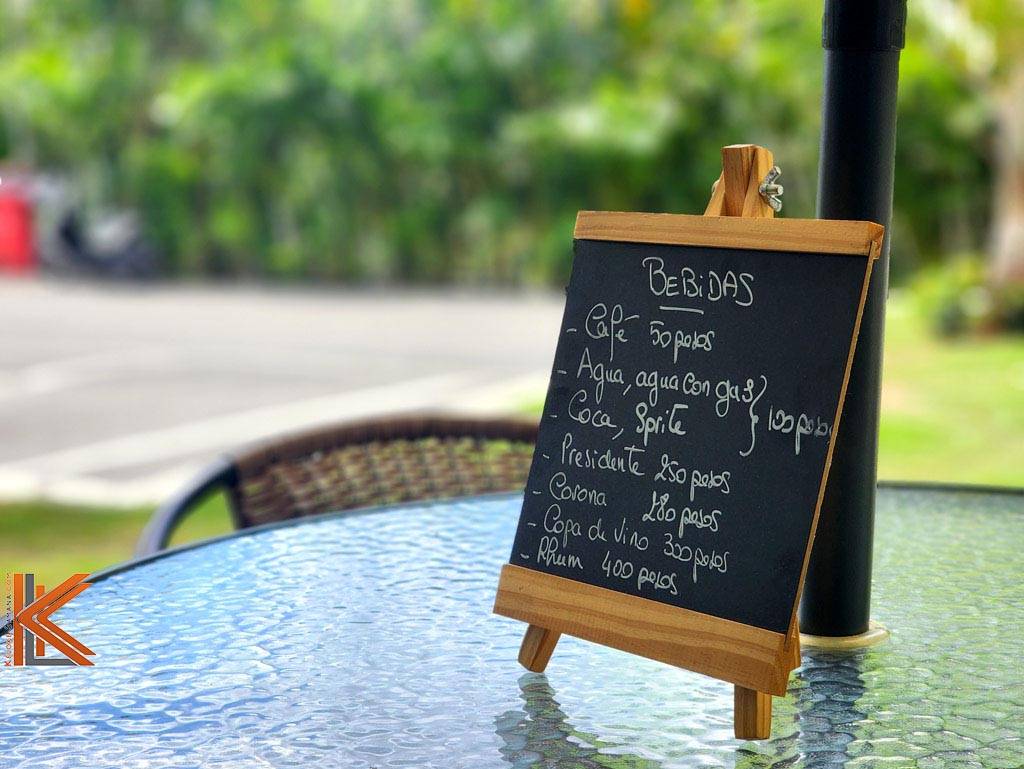 BEBiDAS
- Café 50 pesos
- Agua, agua con gas } 100 pesos
- Coca, Sprite
- Presidente 250 pesos
- Corona 280 pesos
- Copa de vino 300 pesos
- Rhum 400 pesos